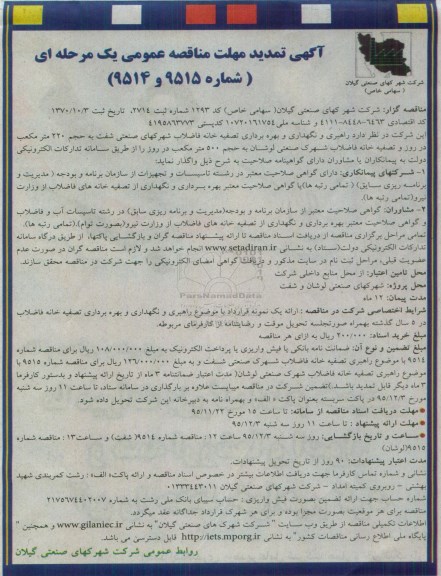 آگهی تمدید مهلت مناقصه عمومی یک مرحله ای
( شماره ۹۵۱۵ و ۹۵۱۴)
شرکت شهرکهای صنعتی گیلان
( سهامی خاص )
مناقصه گزار: شرکت شهرکهای صنعتی گیلان( سهامی خاص) کد ۱۲۹۳ شماره ثبت ۲۷۱۴، تاریخ ثبت ۱۳۷۰/۱۰/۳
کد اقتصادی ۶۴۶۳-۸۴۴۸-۴۱۱۱ و شناسه ملی ۱۰۷۲۰۱۶۱۷۵۴ کدپستی ۴۱۹۵۸۶۳۷۷۳
این شرکت در نظر دارد راهبری و نگهداری و بهره برداری تصفیه خانه فاضلاب شهرکهای صنعتی شفت به حجم ۲۲۰ متر مکعب
در روز و تصفیه خانه فاضلاب شهرک صنعتی لوشان به حجم ۵۰۰ متر مکعب در روز را از طریق سامانه تدارکات الکترونیکی
دولت به پیمانکاران یا مشاوران دارای گواهینامه صلاحیت به شرح ذیل واگذار نماید:
۱- شرکتهای پیمانکاری: دارای گواهی صلاحیت معتبر در رشته تاسیسات و تجهیزات از سازمان برنامه و بودجه ( مدیریت و
برنامه ریزی سابق) ( تمامی رتبه ها) یا گواهی صلاحیت معتبر بهره برداری و نگهداری از تصفیه خانه های فاضلاب از وزارت
نیرو(تمامی رتبه ها).
۲- مشاوران: گواهی صلاحیت معتبر از سازمان برنامه و بودجه(مدیریت و برنامه ریزی سابق) در رشته تاسیسات آب و فاضلاب
و گواهی صلاحیت معتبر بهره برداری و نگهداری از تصفیه خانه های فاضلاب از وزارت نیرو(بصورت توام).(تمامی رتبه ها).
تمامی مراحل برگزاری مناقصه از دریافت اسناد مناقصه تا ارائه پیشنهاد مناقصه گران و بازگشایی پاکتها، از طریق درگاه سامانه
تدارکات الکترونیکی دولت(ستاد) به نشانی www.setadiran.ir انجام خواهد شد و لازم است مناقصه گران در صورت عدم
عضویت قبلی، مراحل ثبت نام در سایت مذکور و دریافت گواهی امضای الکترونیکی را جهت شرکت در مناقصه محقق سازند.
محل تامین اعتبار: از محل منابع داخلی شرکت
محل پروژه: شهرکهای صنعتی لوشان و شفت
مدت پیمان: ۱۲ ماه
شرایط اختصاصی شرکت در مناقصه : ارائه یک نمونه قرارداد با موضوع راهبری و نگهداری و بهره برداری تصفیه خانه فاضلاب
در ۵ سال گذشته بهمراه صورتجلسه تحویل موقت و رضایتنامه از کارفرمای مربوطه.
مبلغ خرید اسناد: ۲۰۰/۰۰۰ ریال به ازای هر مناقصه
مبلغ تضمین و نوع آن: ضمانت نامه بانکی یا فیش واریزی یا پرداخت الکترونیک به مبلغ ۱۰۸/۰۰۰/۰۰۰ ریال برای مناقصه شماره
۹۵۱۴ با موضوع راهبری تصفیه خانه فاضلاب شهرک صنعتی شفت و به مبلغ ۱۲۶/۰۰۰/۰۰۰ ریال برای مناقصه شماره ۹۵۱۵ با
موضوع راهبری تصفیه خانه فاضلاب شهرک صنعتی لوشان( مدت اعتبار ضمانتنامه ۳ ماه از تاریخ ارائه پیشنهاد و بدستور کارفرما
۳ ماه دیگر قابل تمدید باشد.)تضمین شرکت در مناقصه میبایست علاوه بر بارگذاری در سامانه ستاد، تا ساعت ۱۱ روز سه شنبه
مورخ ۹۵/۱۲/۳ در پاکت سربسته بعنوان پاکت « الف» و بهمراه نامه به دبیرخانه این شرکت تحویل داده شود.
مهلت دریافت اسناد مناقصه از سامانه: تا ساعت ۱۵ مورخ ۹۵/۱۱/۲۲
مهلت ارائه پیشنهاد : تا ساعت ۱۱ روز سه شنبه ۹۵/۱۲/۳
ساعت و تاریخ بازگشایی: روز سه شنبه ۹۵/۱۲/۳ ساعت ۱۲: مناقصه شماره ۹۵۱۴( شفت) و ساعت۱۳: مناقصه شماره
۹۵۱۵(لوشان)
مدت اعتبار پیشنهادات: ۹۰ روز از تاریخ تحویل پیشنهادات.
نشانی و شماره تماس کارفرما جهت دریافت اطلاعات بیشتر در خصوص اسناد مناقصه و ارائه پاکت« الف» : رشت کمربندی شهید
بهشتی - روبروی کمیته امداد - شرکت شهرکهای صنعتی گیلان ۰۱۳۳۳۴۴۳۰۱۱
شماره حساب جهت ارائه تضمین بصورت فیش واریزی: حساب سیبای بانک ملی رشت به شماره ۲۱۷۵۶۷۴۴۰۲۰۰۷
مناقصه برای هر موقعیت بصورت مجزا بوده و برای هر شهرک قرارداد جداگانه عقد میگردد.
اطلاعات تکمیلی مناقصه از طریق وب سایت " شرکت شهرک های صنعتی گیلان" به نشانی www.gilaniec.ir و همچنین "
پایگاه ملی اطلاع رسانی مناقصات کشور" به نشانی http://iets.mporg.ir قابل دسترسی می باشد.
روابط عمومی شرکت شهرکهای صنعتی گیلان
ParsNamadData